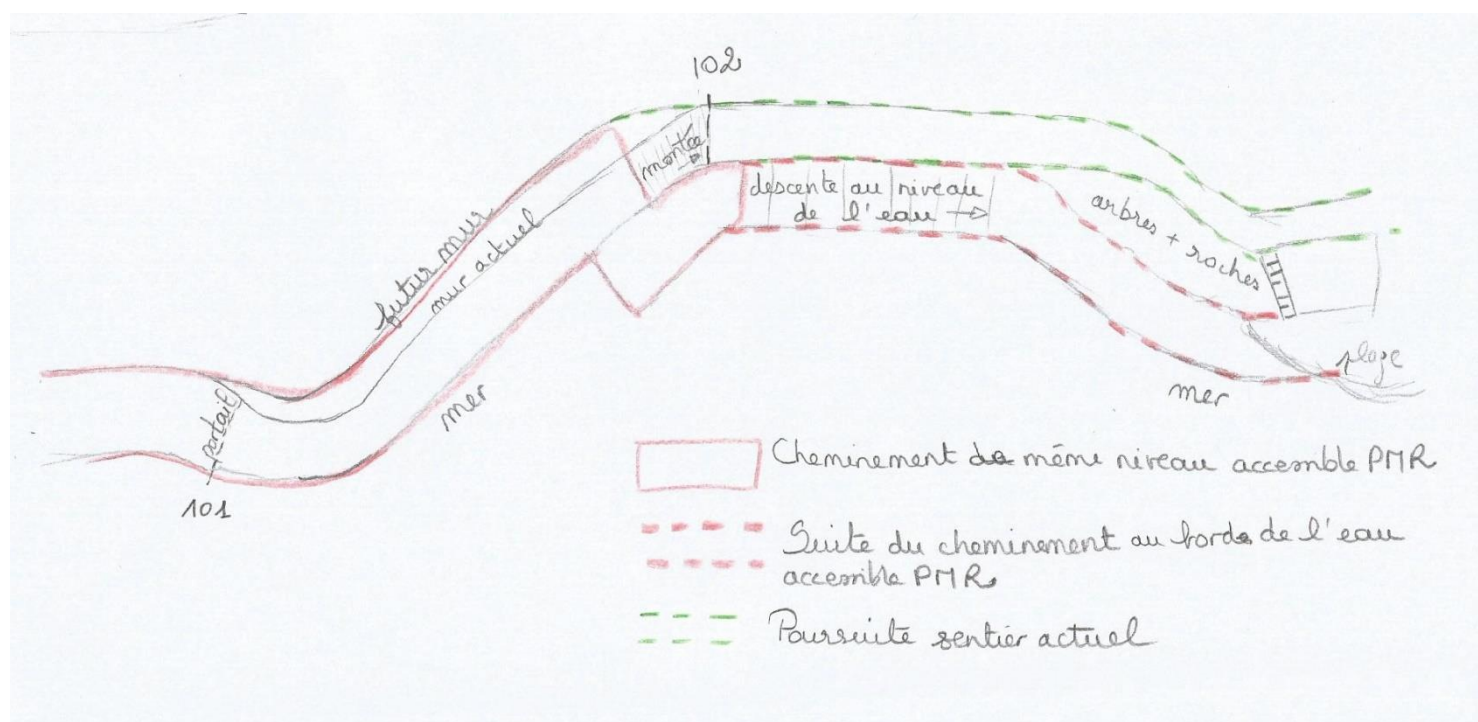 102
montée
descente au niveau
de l'eau
arbres + roches
futur mur
mur actuel
portail
101
mer
mer
plage
Cheminement de même niveau accessible PMR
Suite du cheminement au bord de l'eau
accessible PMR
Poursuite sentier actuel